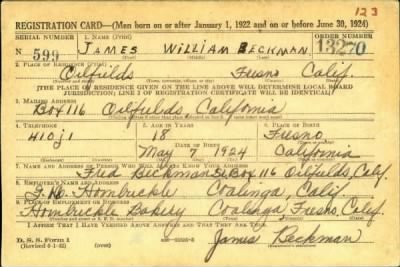 123
REGISTRATION CARD—(Men born on or after January 1, 1922 and on or before June 30, 1924)
SERIAL NUMBER 1. NAME (Print) ORDER NUMBER
N 599 JAMES WILLIAM BECKMAN 13270
(First) (Middle) (Last)
2. PLACE OF RESIDENCE (Print)
Oilfields Fresno Calif.
[THE PLACE OF RESIDENCE GIVEN ON THE LINE ABOVE WILL DETERMINE LOCAL BOARD
JURISDICTION; LINE 2 OF REGISTRATION CERTIFICATE WILL BE IDENTICAL]
3. MAILING ADDRESS
Box 116 Oilfields California
4. TELEPHONE 5. AGE IN YEARS 6. PLACE OF BIRTH
410J1 18 Fresno
DATE OF BIRTH
May 7 1924 California
7. NAME AND ADDRESS OF PERSON WHO WILL ALWAYS KNOW YOUR ADDRESS
Fred Beckman Box 116 Oilfields, Calif.
8. EMPLOYER'S NAME AND ADDRESS
Hornbuckle Coalinga, Calif.
9. PLACE OF EMPLOYMENT OR BUSINESS
Hornbuckle Bakery Coalinga Fresno, Calif.
I AFFIRM THAT I HAVE VERIFIED ABOVE ANSWERS AND THAT THEY ARE TRUE.
D. S. S. Form 1
(Revised 6-1-42) James Beckman